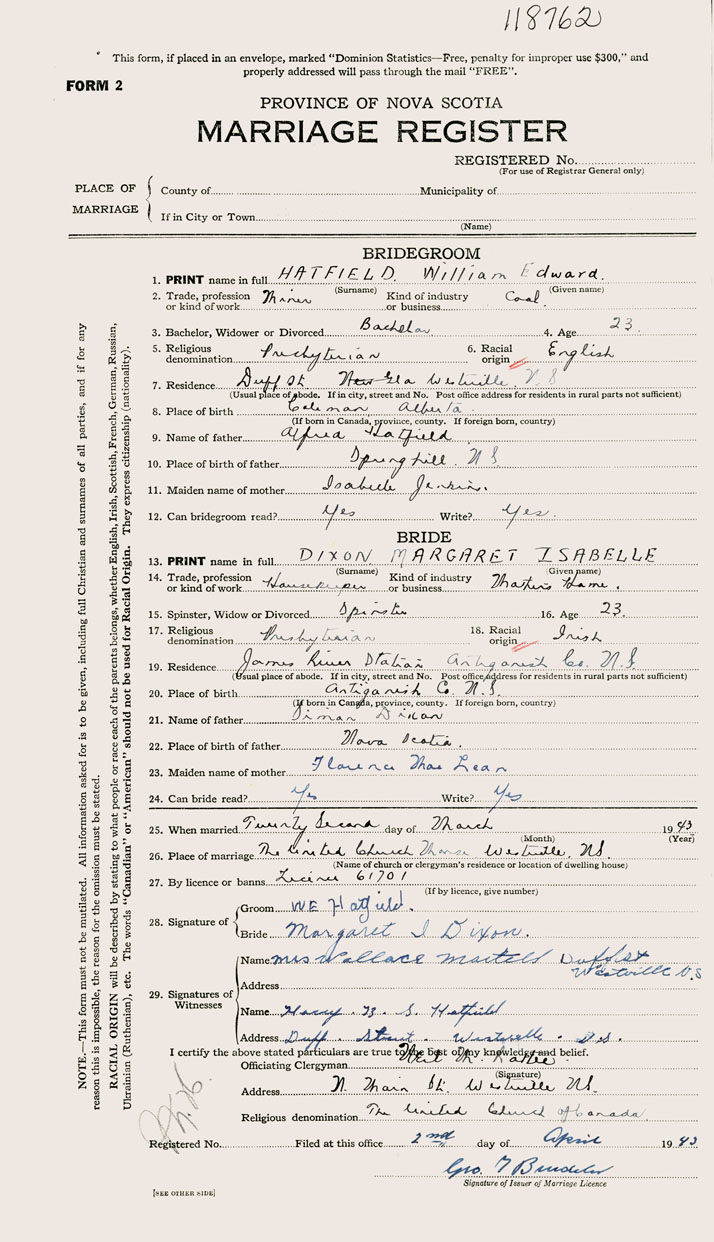 118762
This form, if placed in an envelope, marked "Dominion Statistics—Free, penalty for improper use $300," and
properly addressed will pass through the mail "FREE".
FORM 2
PROVINCE OF NOVA SCOTIA
MARRIAGE REGISTER
REGISTERED No.
(For use of Registrar General only)
PLACE OF MARRIAGE
County of Municipality of
If in City or Town
(Name)
BRIDEGROOM
1. PRINT name in full HATFIELD William Edward.
(Surname) (Given name)
2. Trade, profession or kind of work Miner Kind of industry or business Coal
3. Bachelor, Widower or Divorced Bachelor 4. Age 23
5. Religious denomination Presbyterian 6. Racial origin English
7. Residence Duff St. New Gla Westville, N.S
(Usual place of abode. If in city, street and No. Post office address for residents in rural parts not sufficient)
8. Place of birth Coleman Alberta
(If born in Canada, province, county. If foreign born, country)
9. Name of father Alfred Hatfield
10. Place of birth of father Springhill N S
11. Maiden name of mother Isabelle Jenkins.
12. Can bridegroom read? Yes Write? Yes.
BRIDE
13. PRINT name in full DIXON MARGARET ISABELLE
(Surname) (Given name)
14. Trade, profession or kind of work Housekeeper Kind of industry or business Home.
15. Spinster, Widow or Divorced Spinster 16. Age 23.
17. Religious denomination Presbyterian 18. Racial origin Irish
19. Residence James River Station Antigonish Co. N.S.
(Usual place of abode. If in city, street and No. Post office address for residents in rural parts not sufficient)
20. Place of birth Antigonish Co. N.S.
(If born in Canada, province, county. If foreign born, country)
21. Name of father Dixon
22. Place of birth of father Nova Scotia.
23. Maiden name of mother Florence Mac Lean
24. Can bride read? Yes Write? Yes
25. When married Twenty Second day of March 1943
(Month) (Year)
26. Place of marriage The United Church Manse Westville, NS.
(Name of church or clergyman's residence or location of dwelling house)
27. By licence or banns License 61701
(If by licence, give number)
28. Signature of
Groom WE Hatfield.
Bride Margaret I Dixon.
29. Signatures of Witnesses
Name Mrs Wallace Duff St
Westville N.S
Address
Name Harry B. S. Hatfield
Address Duff Street Westville N.S.
I certify the above stated particulars are true to the best of my knowledge and belief.
Officiating Clergyman Neil M.
(Signature)
Address N. Main St. Westville NS.
Religious denomination The United Church of Canada
Registered No. Filed at this office 2nd day of April 1943
Geo. T
Signature of Issuer of Marriage Licence
[SEE OTHER SIDE]
NOTE.—This form must not be mutilated. All information asked for is to be given, including full Christian and surnames of all parties, and if for any
reason this is impossible, the reason for the omission must be stated.
RACIAL ORIGIN will be described by stating to what people or race each of the parents belongs, whether English, Irish, Scottish, French, German, Russian,
Ukrainian (Ruthenian), etc. The words "Canadian" or "American" should not be used for Racial Origin. They express citizenship (nationality).